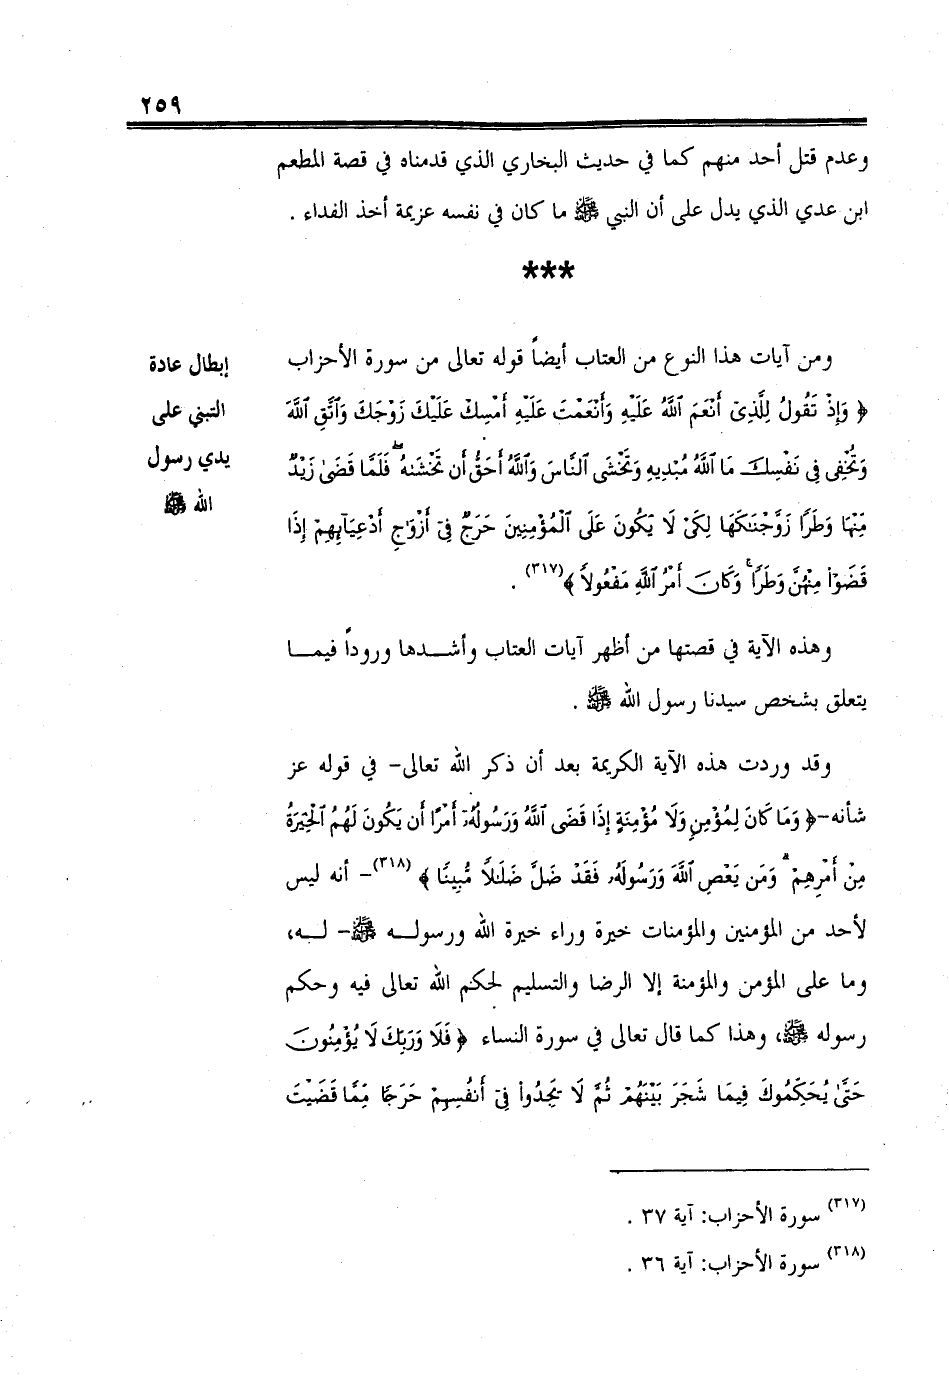 ٢٥٩
وعدم قتل أحد منهم كما في حديث البخاري الذي قدمناه في قصة المطعم
ابن عدي الذي يدل على أن النبي ﷺ ما كان في نفسه عزيمة أخذ الفداء .
***
إبطال عادة
التبني على
يدي رسول
الله ﷺ
ومن آيات هذا النوع من العتاب أيضاً قوله تعالى من سورة الأحزاب
﴿ وَإِذْ تَقُولُ لِلَّذِىٓ أَنْعَمَ ٱللَّهُ عَلَيْهِ وَأَنْعَمْتَ عَلَيْهِ أَمْسِكْ عَلَيْكَ زَوْجَكَ وَٱتَّقِ ٱللَّهَ
وَتُخْفِى فِى نَفْسِكَ مَا ٱللَّهُ مُبْدِيهِ وَتَخْشَى ٱلنَّاسَ وَٱللَّهُ أَحَقُّ أَن تَخْشَىٰهُ ۖ فَلَمَّا قَضَىٰ زَيْدٌ
مِّنْهَا وَطَرًا زَوَّجْنَٰكَهَا لِكَىْ لَا يَكُونَ عَلَى ٱلْمُؤْمِنِينَ حَرَجٌ فِىٓ أَزْوَٰجِ أَدْعِيَآئِهِمْ إِذَا
قَضَوْا۟ مِنْهُنَّ وَطَرًا ۚ وَكَانَ أَمْرُ ٱللَّهِ مَفْعُولًا ﴾(٣١٧) .
وهذه الآية في قصتها من أظهر آيات العتاب وأشدها وروداً فيما
يتعلق بشخص سيدنا رسول الله ﷺ .
وقد وردت هذه الآية الكريمة بعد أن ذكر الله تعالى- في قوله عز
شأنه-﴿ وَمَا كَانَ لِمُؤْمِنٍ وَلَا مُؤْمِنَةٍ إِذَا قَضَى ٱللَّهُ وَرَسُولُهُۥٓ أَمْرًا أَن يَكُونَ لَهُمُ ٱلْخِيَرَةُ
مِنْ أَمْرِهِمْ ۗ وَمَن يَعْصِ ٱللَّهَ وَرَسُولَهُۥ فَقَدْ ضَلَّ ضَلَٰلًا مُّبِينًا ﴾ (٣١٨)- أنه ليس
لأحد من المؤمنين والمؤمنات خيرة وراء خيرة الله ورسوله ﷺ- له،
وما على المؤمن والمؤمنة إلا الرضا والتسليم لحكم الله تعالى فيه وحكم
رسوله ﷺ، وهذا كما قال تعالى في سورة النساء ﴿ فَلَا وَرَبِّكَ لَا يُؤْمِنُونَ
حَتَّىٰ يُحَكِّمُوكَ فِيمَا شَجَرَ بَيْنَهُمْ ثُمَّ لَا يَجِدُوا۟ فِىٓ أَنفُسِهِمْ حَرَجًا مِّمَّا قَضَيْتَ
(٣١٧) سورة الأحزاب: آية ٣٧ .
(٣١٨) سورة الأحزاب: آية ٣٦ .